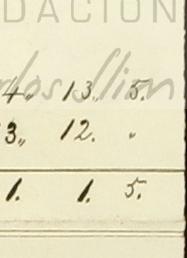 DACIÓN
Carlos Slim
4" 13" 5.
3" 12. "
1. 1. 5.